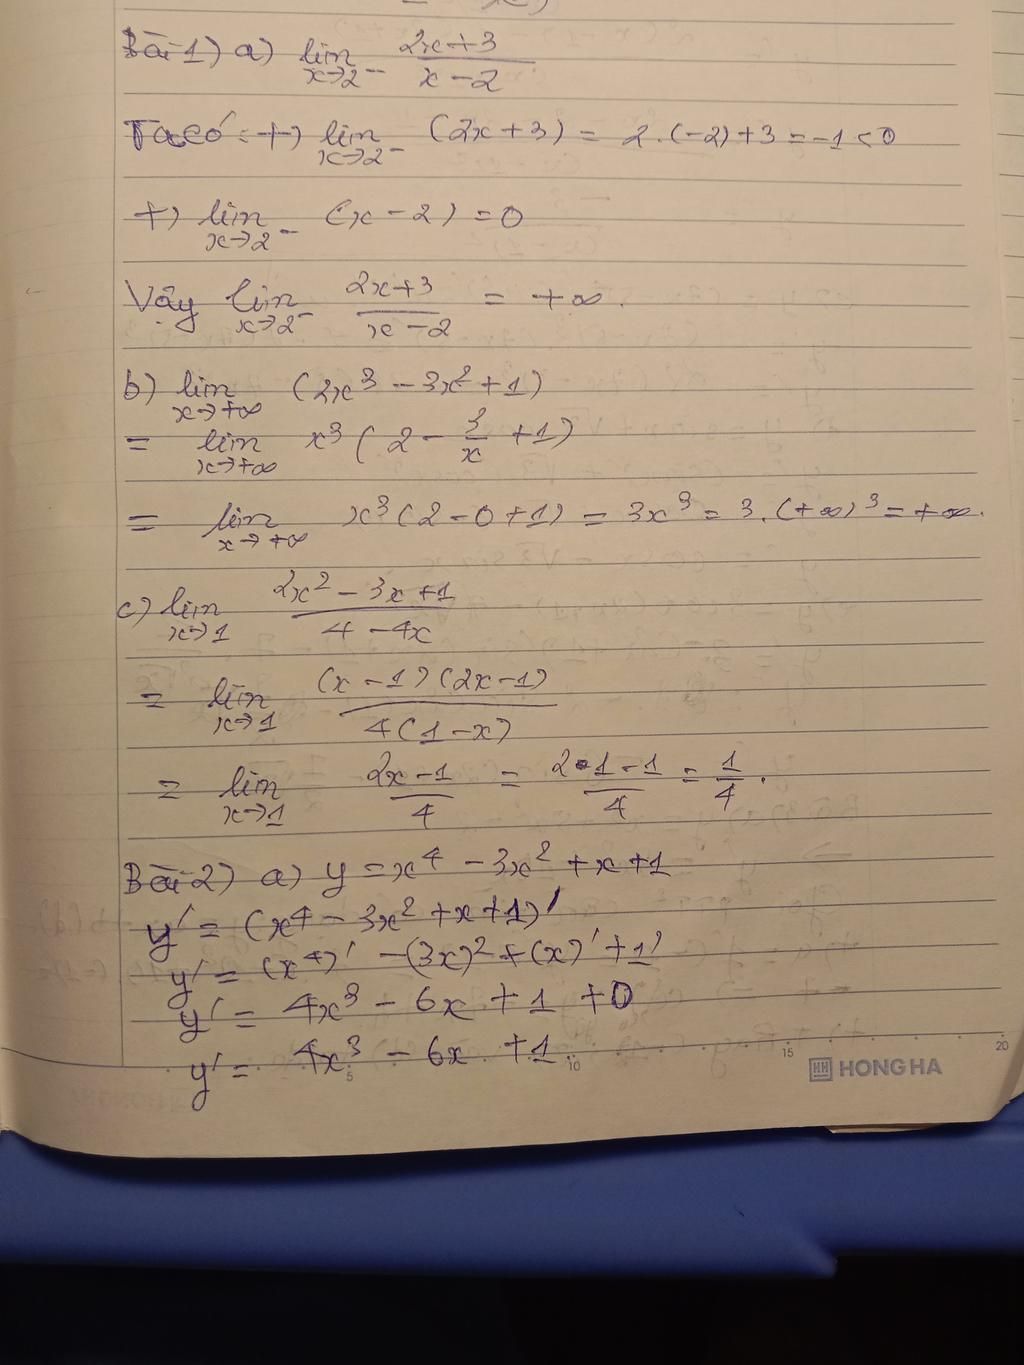 Bài 1) a) lim x→2⁻ (2x+3)/(x-2)
Ta có: +) lim x→2⁻ (2x+3) = 2.(-2)+3 = -1 < 0
+) lim x→2⁻ (x-2) = 0
Vậy lim x→2⁻ (2x+3)/(x-2) = +∞.
b) lim x→+∞ (2x³ - 3x² + 1)
= lim x→+∞ x³ (2 - 3/x + 1)
= lim x→+∞ x³ (2-0+1) = 3x³ = 3.(+∞)³ = +∞.
c) lim x→1 (2x² - 3x + 1)/(4-4x)
= lim x→1 (x-1)(2x-1)/4(1-x)
= lim x→1 (2x-1)/4 = (2•1-1)/4 = 1/4.
Bài 2) a) y = x⁴ - 3x² + x + 1
y' = (x⁴ - 3x² + x + 1)'
y' = (x⁴)' - (3x)² + (x)' + 1'
y' = 4x³ - 6x + 1 + 0
y' = 4x³ - 6x + 1
5 10 15 20
HH HONG HA